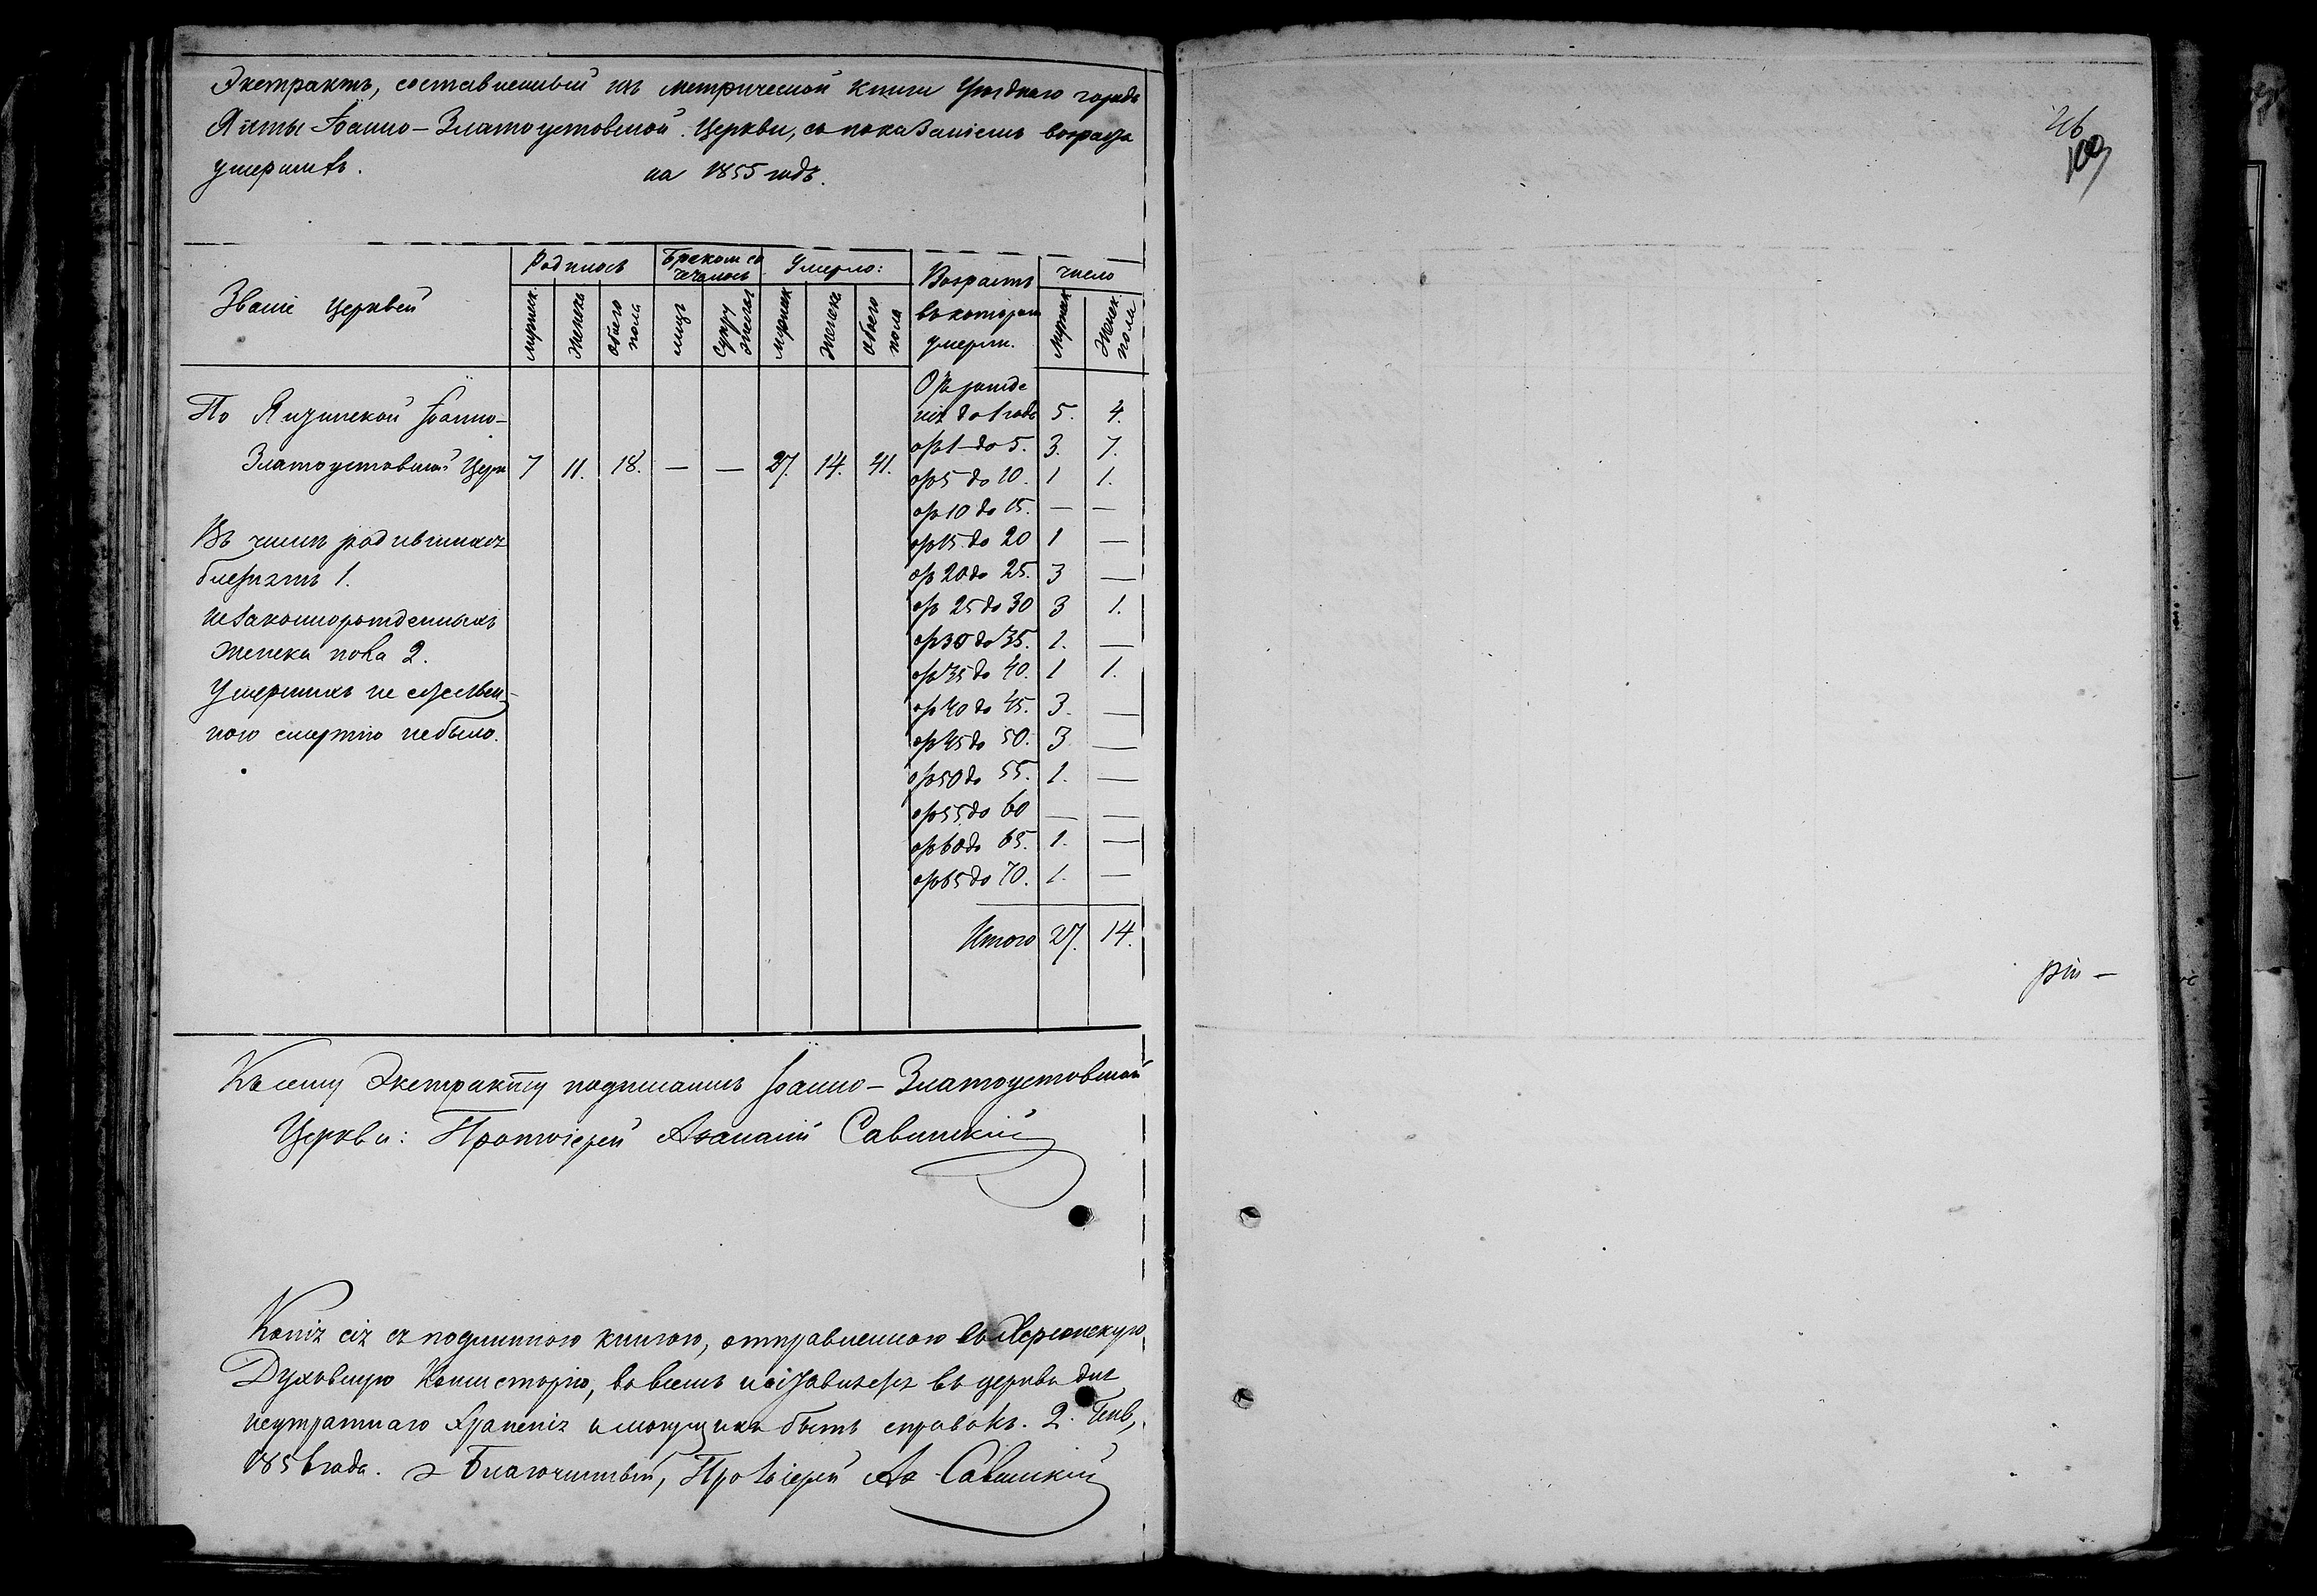 Экстрактъ, составленный изъ метрической книги Уѣзднаго города
Ялты Іоанно-Златоустовской Церкви, съ показаніемъ возраста
умершихъ.
на 1855 годъ.
Званіе Церквей
Родилось
Бракомъ со
четалось
Умерло:
Возрастъ
въ которомъ
умерли.
число
мужск.
женск.
обоего пола
лицъ
супружествъ
мужск
женскъ
обоего пола
мужск
Женск. пола
По Ялтинской Іоанно-
Златоустовской Церк 7 11. 18. — — 27. 14. 41.
Отъ рожде
нія до 1 года 5. 4.
отъ 1 до 5. 3. 7.
отъ 5 до 10. 1 1.
отъ 10 до 15. — —
отъ 15 до 20 1 —
отъ 20 до 25. 3 —
отъ 25 до 30 3 1.
отъ 30 до 35. 1. —
отъ 35 до 40. 1 1.
отъ 40 до 45. 3. —
отъ 45 до 50. 3 —
отъ 50 до 55. 1. —
отъ 55 до 60 — —
отъ 60 до 65. 1. —
отъ 65 до 70. 1. —
Итого 27. 14.
Въ числѣ родившихся
близнятъ 1.
незаконнорожденныхъ
женска пола 2.
Умершихъ не естествен-
ною смертію небыло.
Къ сему Экстракту подписались Іоанно-Златоустовской
Церкви: Протоіерей Аѳанасій Савицкій
Копія сія съ подлинною книгою, отправленною въ Херсонскую
Духовную Консисторію, во всемъ и оставляется въ церкви для
неутратнаго храненія и могущихъ быть справокъ. 2. Генв,
1856 года. Благочинный, Протоіерей Аѳ. Савицкій
26
109